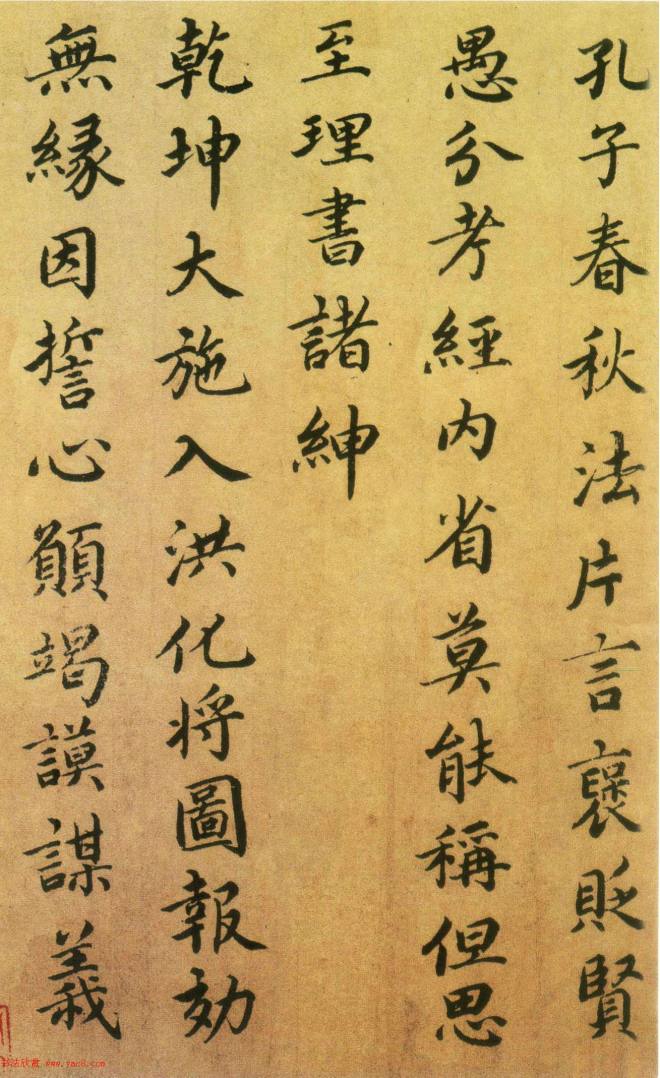 孔子春秋法片言襃貶賢
愚分考經内省莫能稱但思
至理書諸紳
乾坤大施入洪化將圖報効
無緣因誓心願竭謨謀義
書法欣賞 www.yac8.com